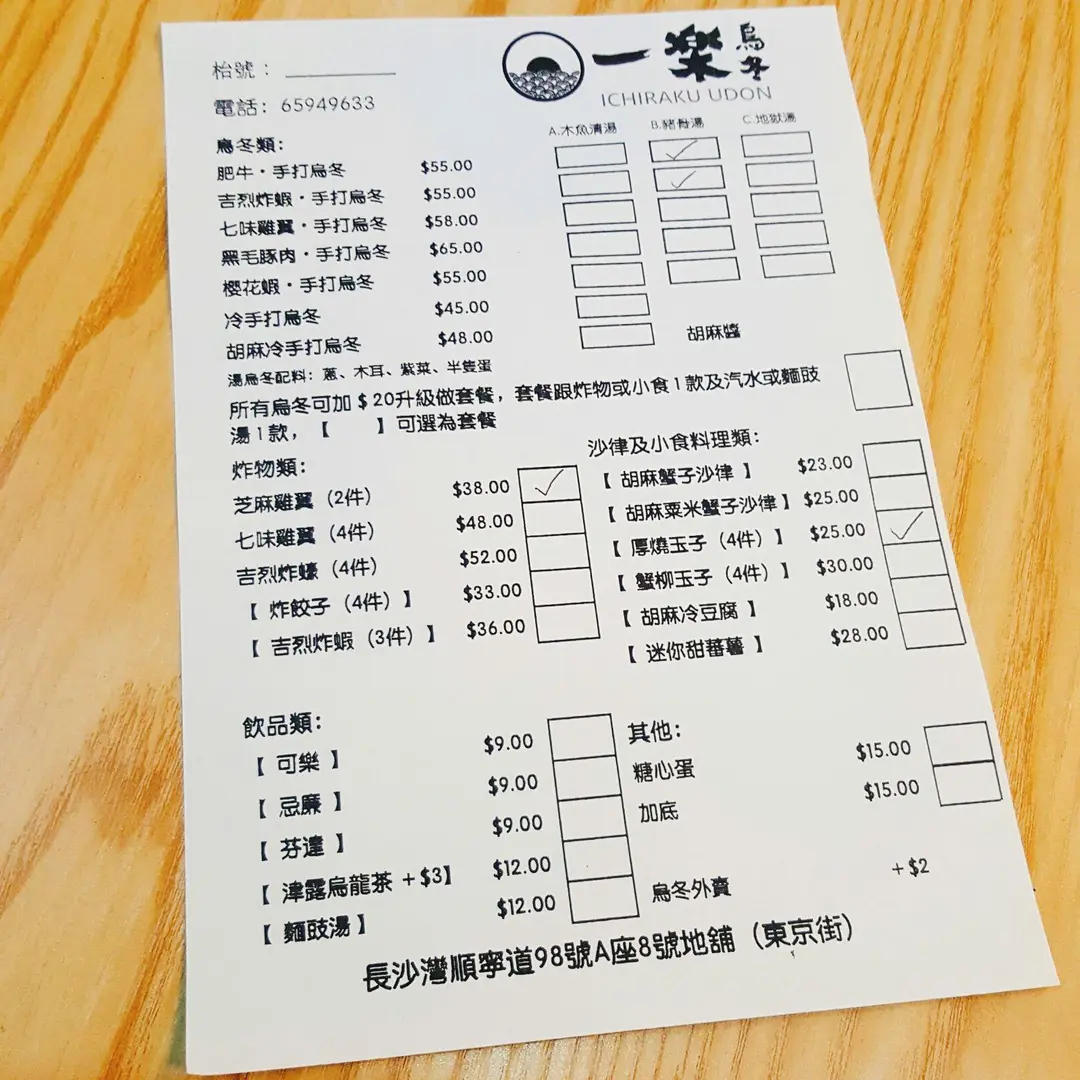 枱號：
一樂烏冬
ICHIRAKU UDON
電話: 65949633
A.木魚清湯 B.豬骨湯 C.地獄湯
烏冬類:
肥牛・手打烏冬 $55.00
吉烈炸蝦・手打烏冬 $55.00
七味雞翼・手打烏冬 $58.00
黑毛豚肉・手打烏冬 $65.00
櫻花蝦・手打烏冬 $55.00
冷手打烏冬 $45.00
胡麻冷手打烏冬 $48.00 胡麻醬
湯烏冬配料: 蔥、木耳、紫菜、半隻蛋
所有烏冬可加 $20升級做套餐, 套餐跟炸物或小食1款及汽水或麵豉
湯1款, 【 】可選為套餐
炸物類:
芝麻雞翼 (2件) $38.00
七味雞翼 (4件) $48.00
吉烈炸蠔 (4件) $52.00
【 炸餃子 (4件) 】 $33.00
【 吉烈炸蝦 (3件) 】 $36.00
沙律及小食料理類:
【 胡麻蟹子沙律 】 $23.00
【 胡麻粟米蟹子沙律 】 $25.00
【 厚燒玉子 (4件) 】 $25.00
【 蟹柳玉子 (4件) 】 $30.00
【 胡麻冷豆腐 】 $18.00
【 迷你甜蕃薯 】 $28.00
飲品類:
【 可樂 】 $9.00
【 忌廉 】 $9.00
【 芬達 】 $9.00
【 津露烏龍茶 +$3】 $12.00
【 麵豉湯 】 $12.00
其他:
糖心蛋 $15.00
加底 $15.00
烏冬外賣 +$2
長沙灣順寧道98號A座8號地舖 (東京街)